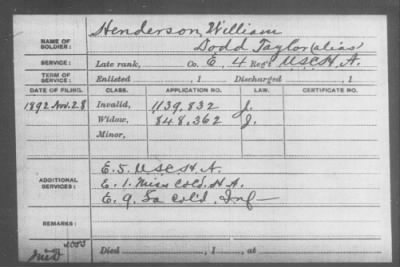 NAME OF SOLDIER: Henderson, William
Dodd Taylor (alias)
SERVICE: Late rank, Co. E, 4 Reg't U.S.C.H.A.
TERM OF SERVICE: Enlisted , 1 Discharged , 1
DATE OF FILING. CLASS. APPLICATION NO. LAW. CERTIFICATE NO.
1892 Nov. 28 Invalid, 1139,832 J.
Widow, 848,362 J.
Minor,
ADDITIONAL SERVICES: E. 5. U.S.C.H.A.
E. 1. Miss Cold. H.A.
E. 9. La Col'd. Inf
REMARKS:
Died , 1 , at